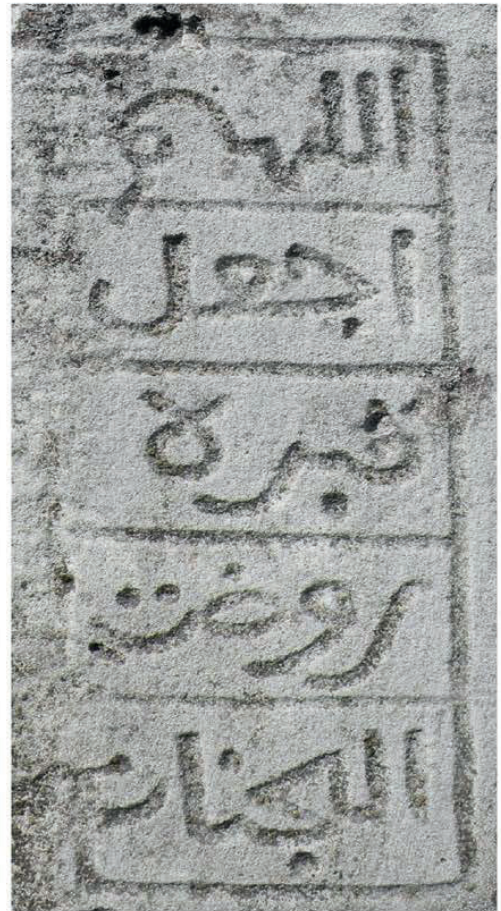 اللهم
اجعل
قبره
روضت
الجنان